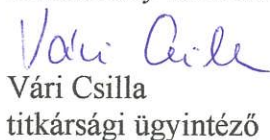 Vári Csilla
Vári Csilla
titkársági ügyintéző